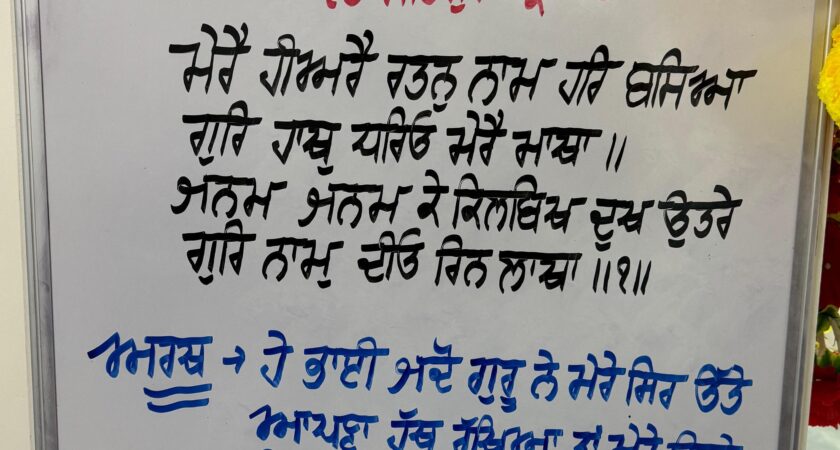 ਮੇਰੈ ਹੀਅਰੈ ਰਤਨੁ ਨਾਮ ਹਰਿ ਬਸਿਆ
ਗੁਰਿ ਹਾਥੁ ਧਰਿਓ ਮੇਰੈ ਮਾਥਾ ॥
ਜਨਮ ਜਨਮ ਕੇ ਕਿਲਬਿਖ ਦੁਖ ਉਤਰੇ
ਗੁਰਿ ਨਾਮੁ ਦੀਓ ਰਿਨ ਲਾਥਾ ॥੧॥
ਅਰਥ → ਹੇ ਭਾਈ ਜਦੋਂ ਗੁਰੂ ਨੇ ਮੇਰੇ ਸਿਰ ਉੱਤੇ
ਆਪਣਾ ਹੱਥ ਰੱਖਿਆ ਤਾਂ ਮੇਰੇ